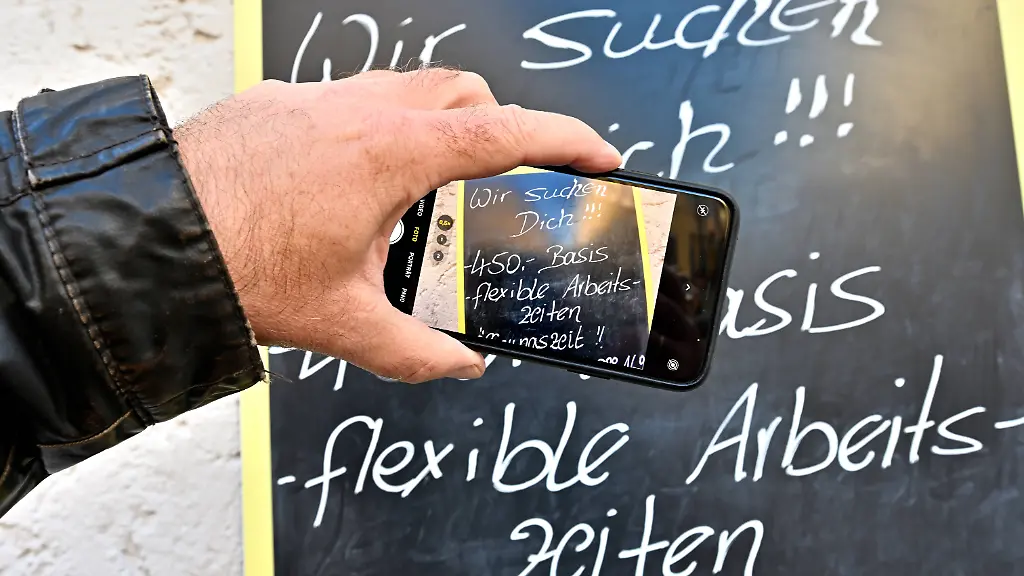 Wir suchen
Dich !!!
Basis
-flexible Arbeits-
zeiten
VIDEO
FOTO
PORTRÄT
PANO
Wir suchen
Dich !!!
-450.- Basis
-flexible Arbeits-
zeiten
!!